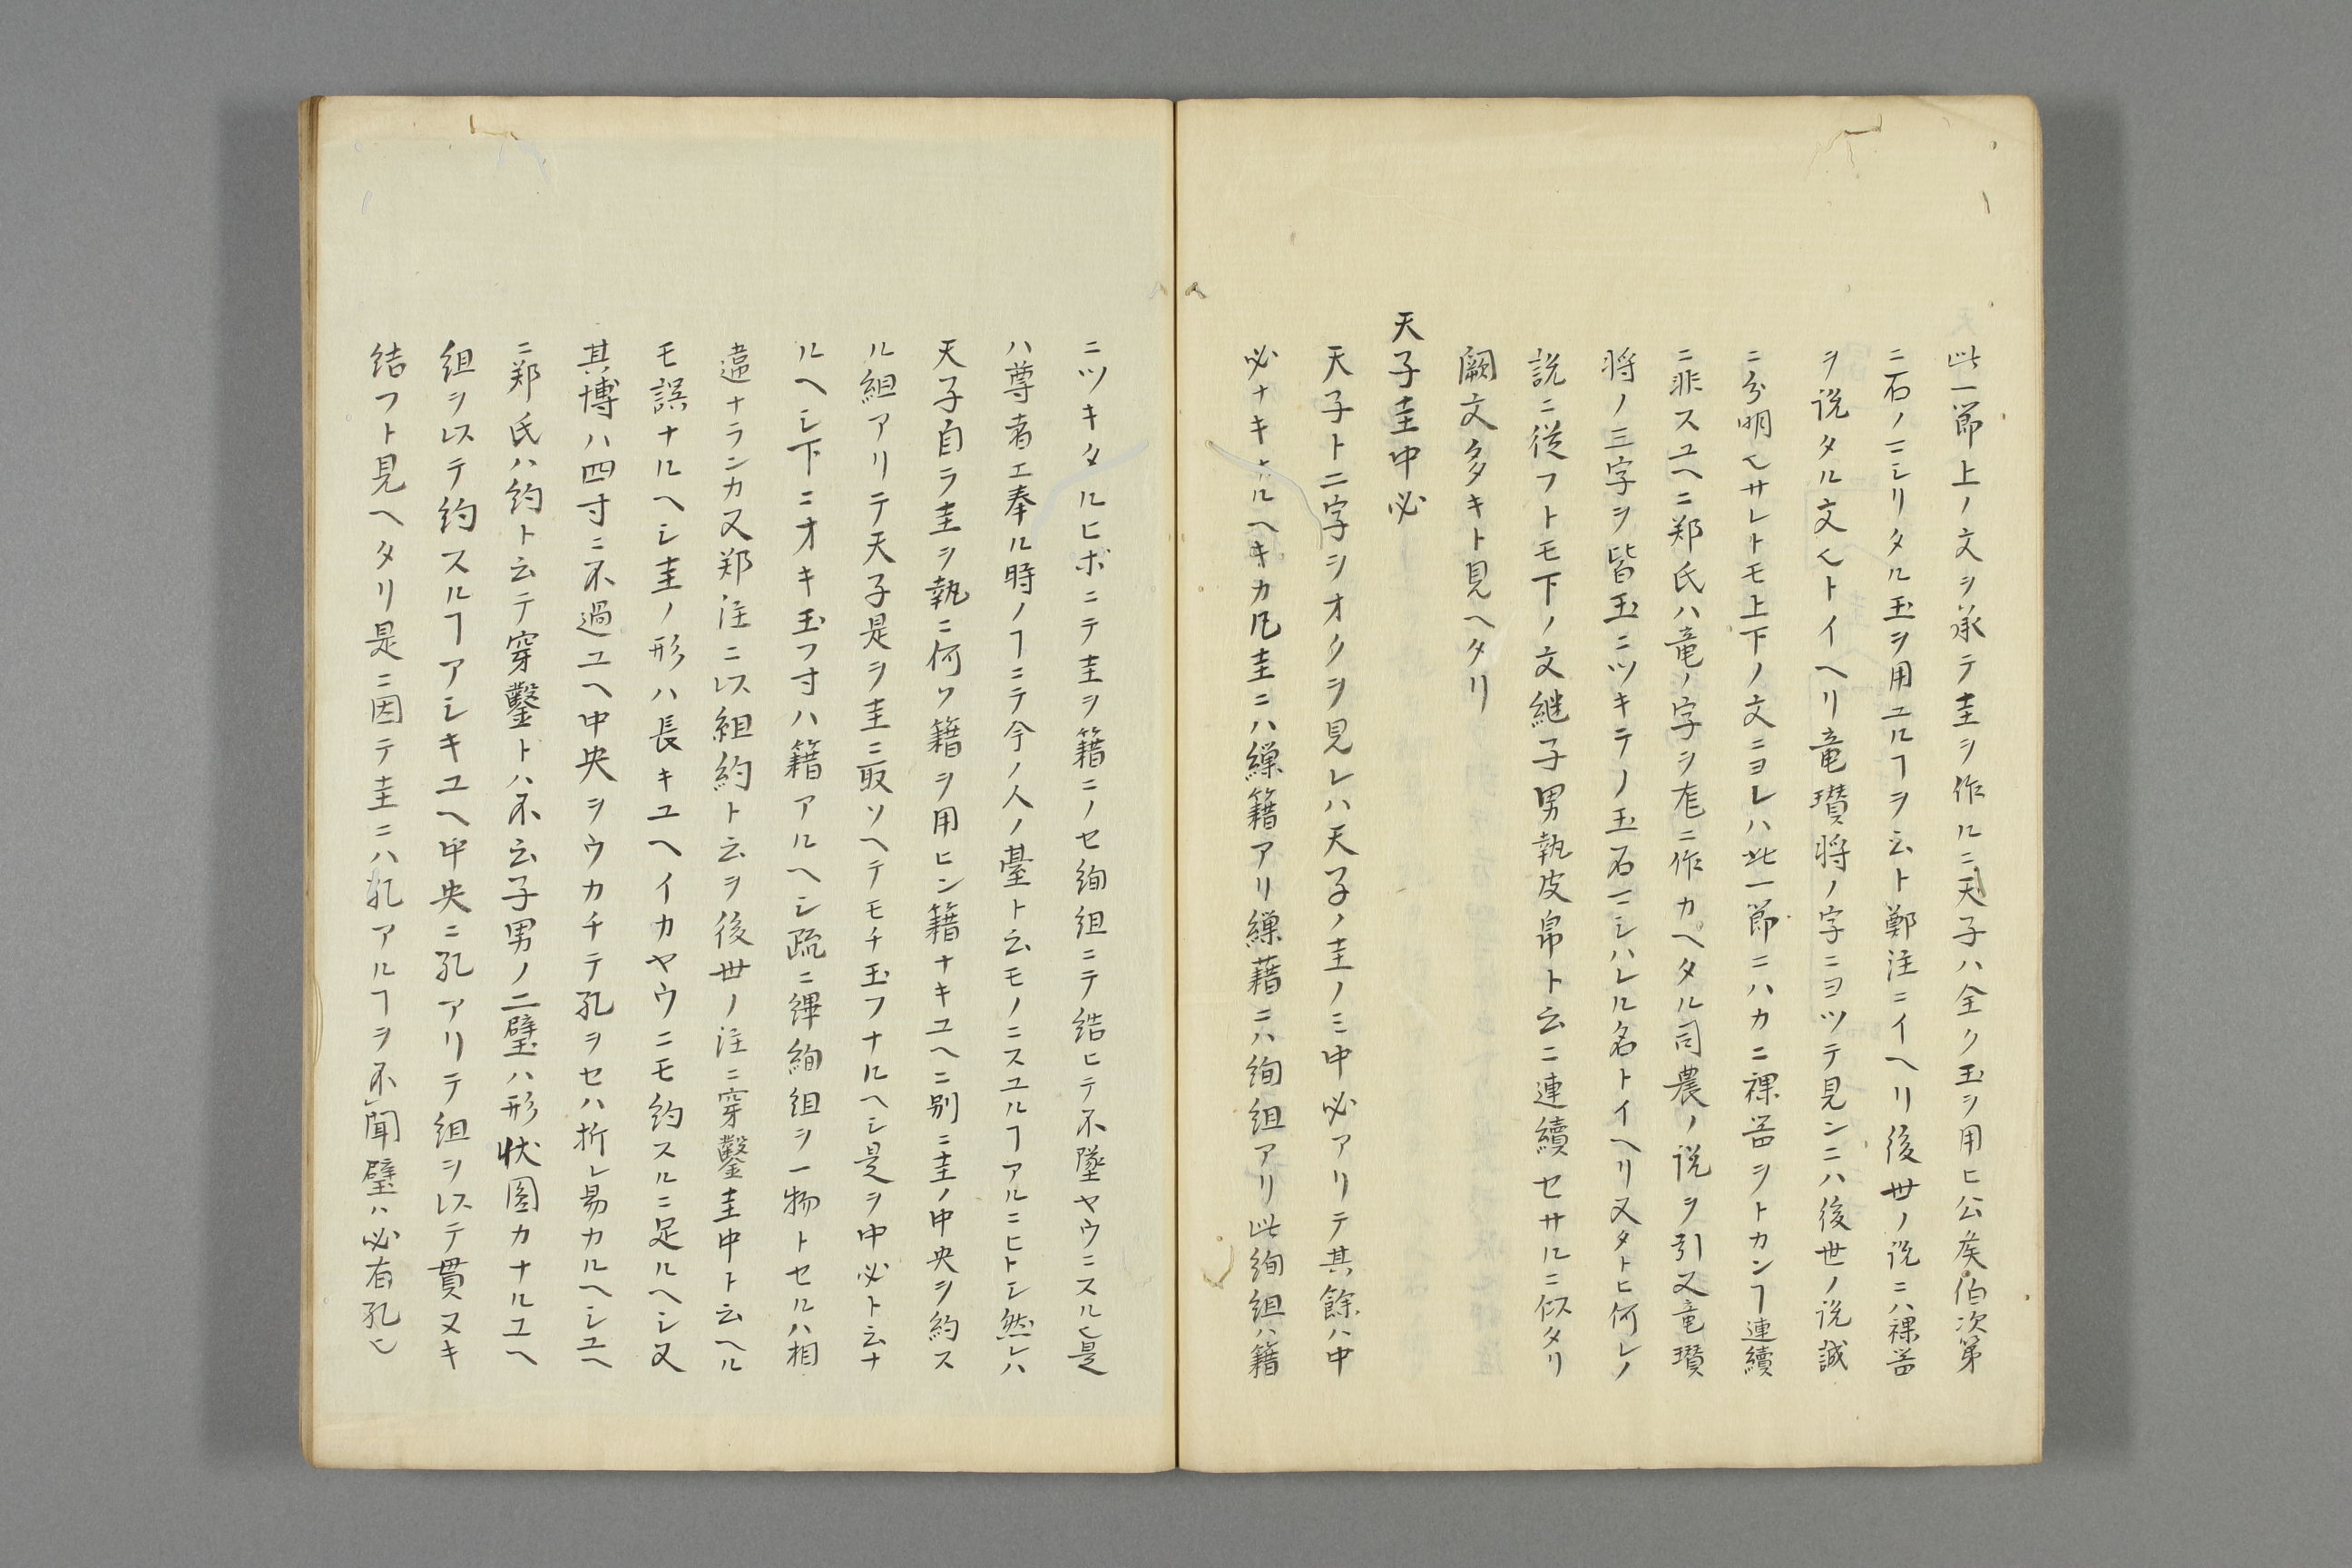 此一節上ノ文ヲ承テ圭ヲ作ルニ天子ハ全ク玉ヲ用ヒ公矦伯次第
ニ石ノマシリタル玉ヲ用ユルヿヲ云ト鄭注ニイヘリ後世ノ説ニハ祼器
ヲ説タル文也トイヘリ竜瓚将ノ字ニヨツテ見ンニハ後世ノ説誠
ニ分明也サレトモ上下ノ文ニヨレハ此一節ニハカニ祼器ヲトカンヿ連續
ニ非スユヘニ郑氏ハ竜ノ字ヲ尨ニ作カヘタル司農ノ説ヲ引又竜瓚
将ノ三字ヲ皆玉ニツキテノ玉石マシハレル名トイヘリ又タトヒ何レノ
説ニ従フトモ下ノ文継子男執皮帛ト云ニ連續セサルニ似タリ
闕文多キト見ヘタリ
天子圭中必
天子ト二字ヲオクヲ見レハ天子ノ圭ノミ中必アリテ其餘ハ中
必ナキナルヘキカ凡圭ニハ繅籍アリ繅藉ニハ絢組アリ此絢組ハ籍
ニツキタルヒボニテ圭ヲ籍ニノセ絢組ニテ結ヒテ不墜ヤウニスル也是
ハ尊者エ奉ル時ノヿニテ今ノ人ノ臺ト云モノニスユルヿアルニヒトシ然レハ
天子自ラ圭ヲ執ニ何ソ籍ヲ用ヒン籍ナキユヘニ別ニ圭ノ中央ヲ約ス
ル組アリテ天子是ヲ圭ニ取ソヘテモチ玉フナルヘシ是ヲ中必ト云ナ
ルヘシ下ニオキ玉フ寸ハ籍アルヘシ疏ニ縪絢組ヲ一物トセルハ相
違ナランカ又郑注ニ以組約ト云ヲ後世ノ注ニ穿鑿圭中ト云ヘル
モ誤ナルヘシ圭ノ形ハ長キユヘイカヤウニモ約スルニ足ルヘシ又
其博ハ四寸ニ不過ユヘ中央ヲウカチテ孔ヲセハ折レ易カルヘシユヘ
ニ郑氏ハ約ト云テ穿鑿トハ不云子男ノ二璧ハ形状圎カナルユヘ
組ヲ以テ約スルヿアシキユヘ中央ニ孔アリテ組ヲ以テ貫ヌキ
結フト見ヘタリ是ニ因テ圭ニハ孔アルヿヲ不聞璧ハ必有孔也